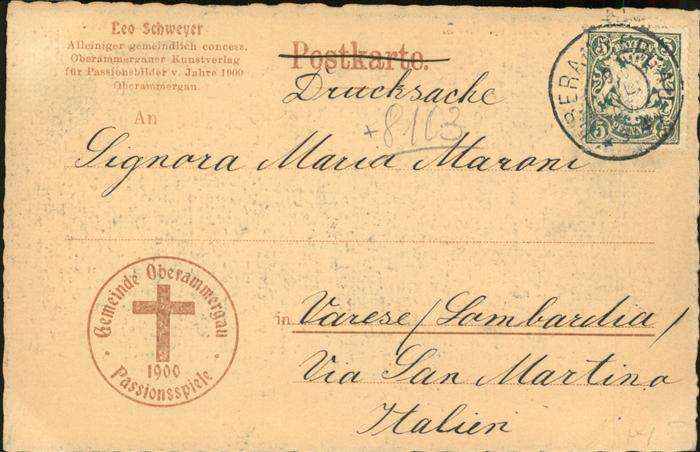 Leo Schweyer
Alleiniger gemeindlich concess.
Oberammergauer Kunstverlag
für Passionsbilder v. Jahre 1900
Oberammergau.
Postkarte.
Drucksache
+8163
An
Signora Maria Maroni
in Varese (Lombardia)
Via San Martino
Italien
Gemeinde Oberammergau
1900
Passionsspiele
5 5
BAYERN
PFENNIG
OBERAM